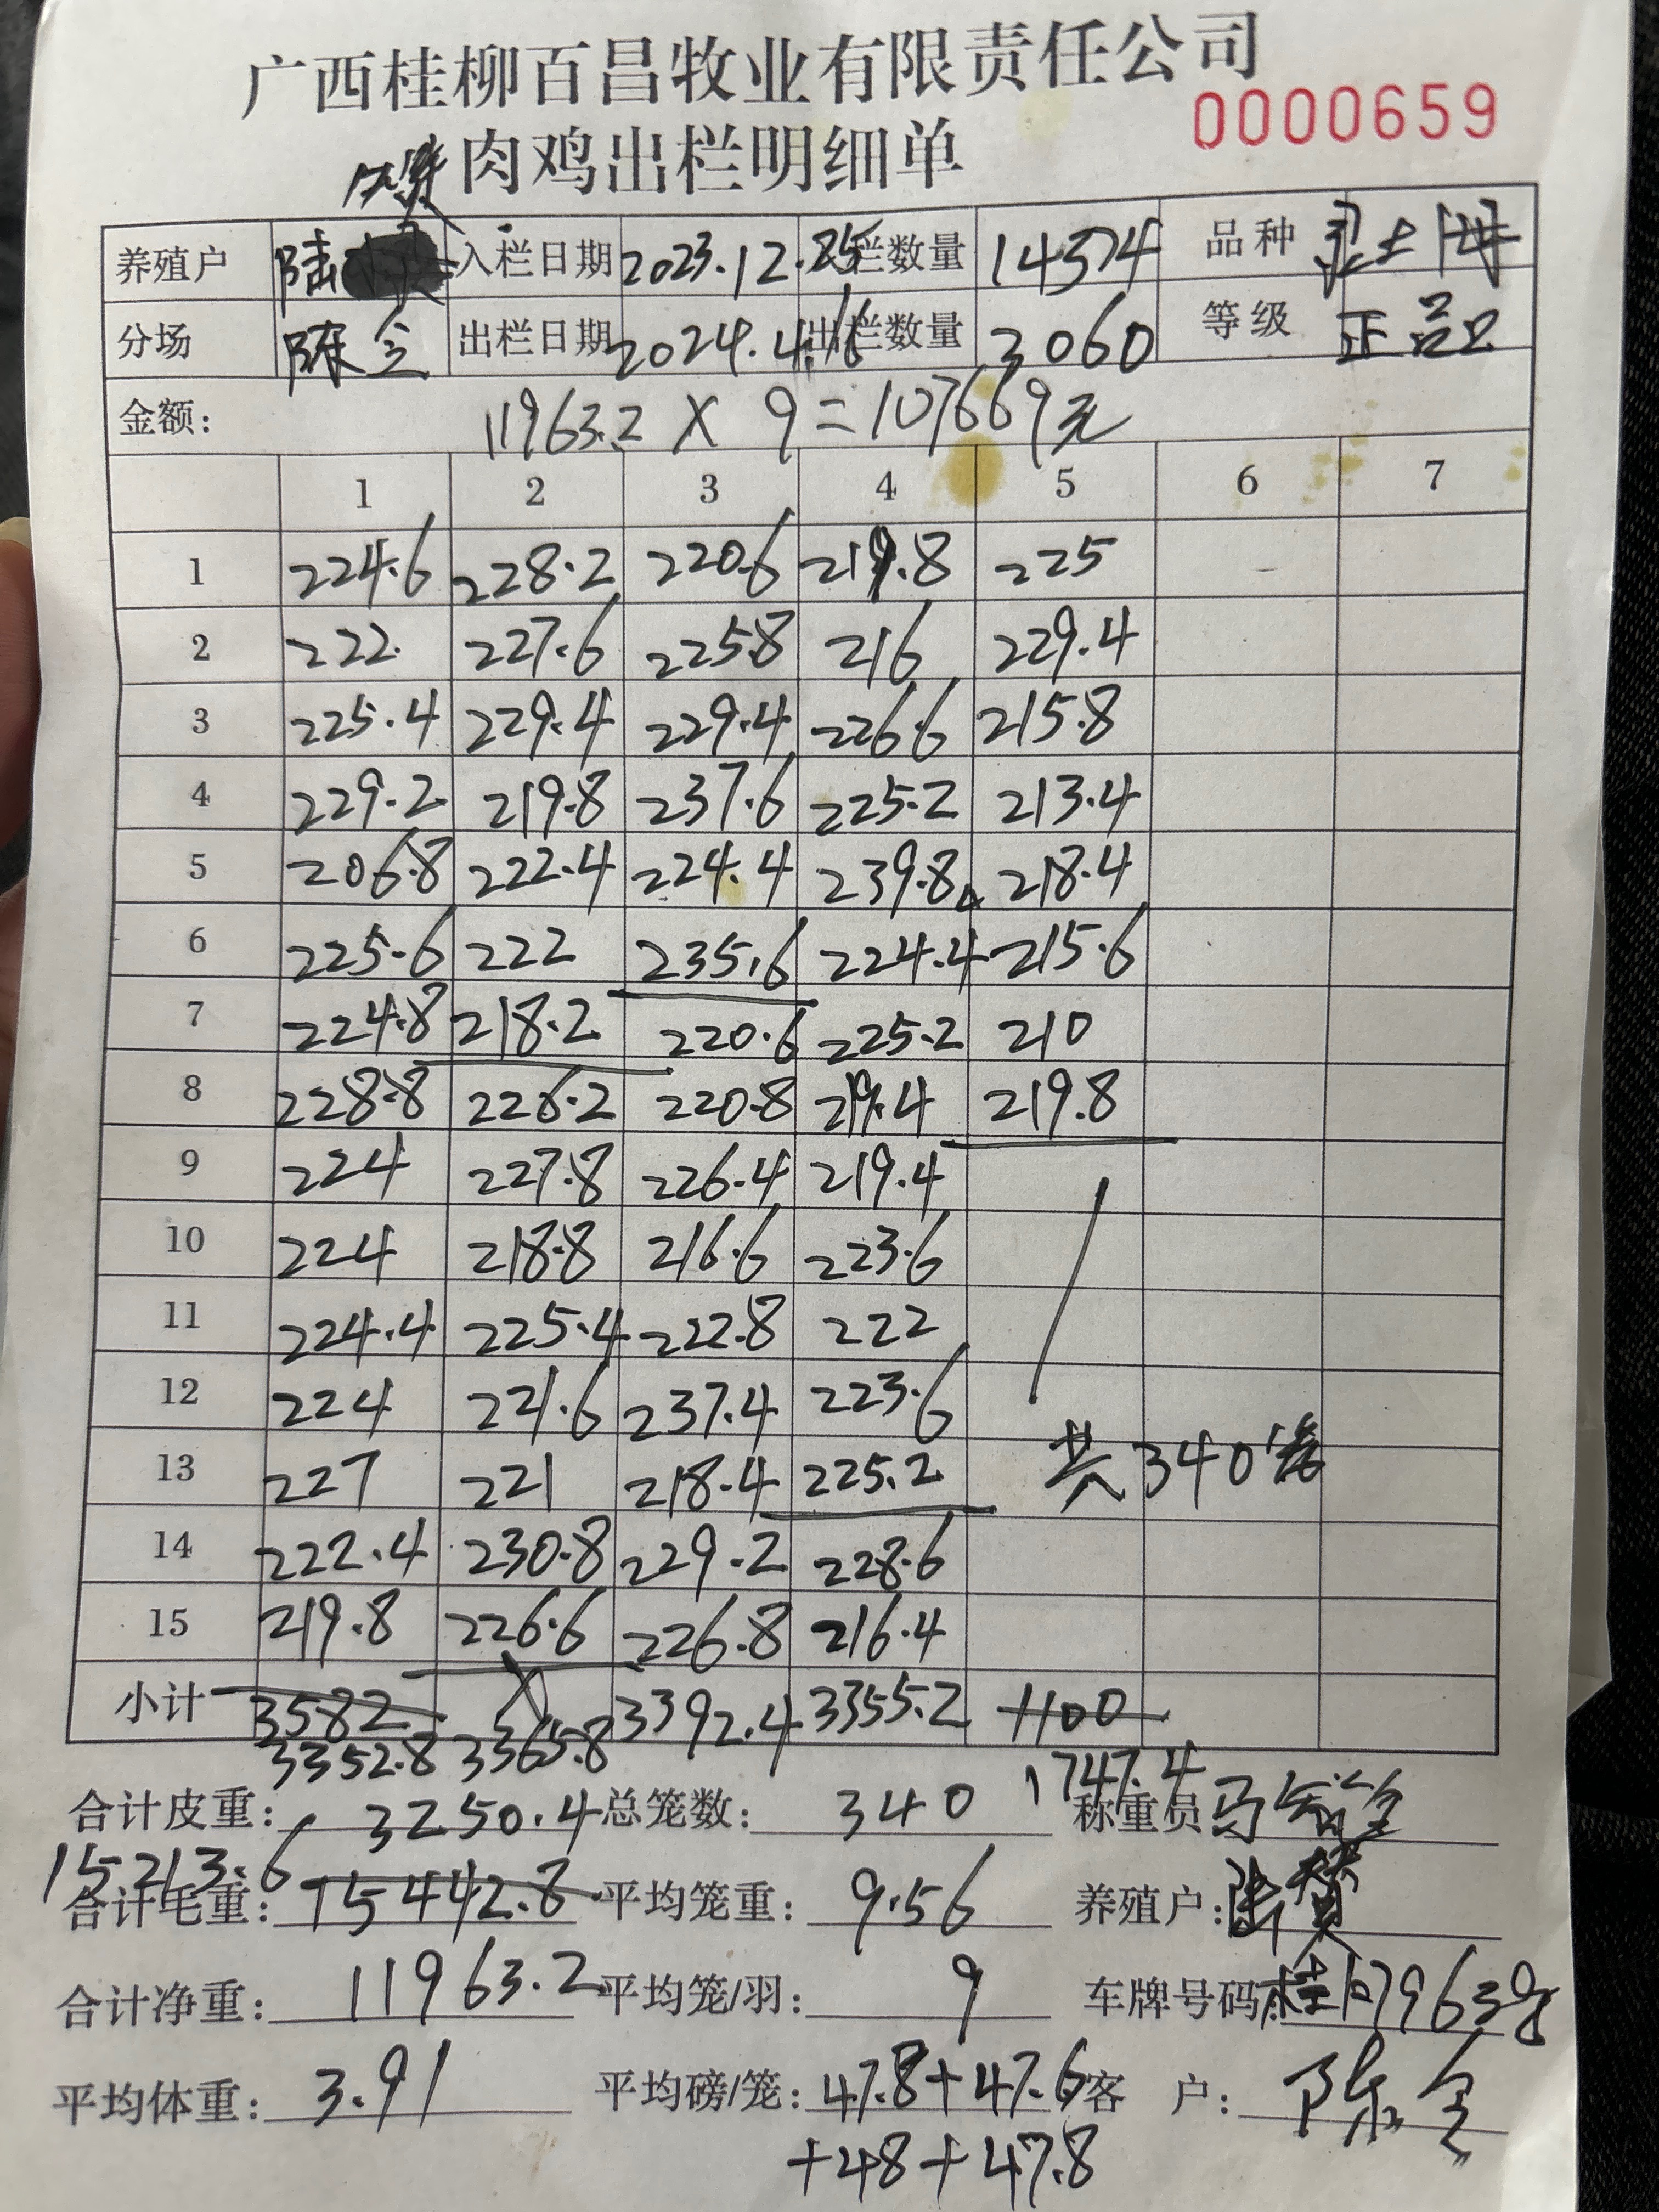 广西桂柳百昌牧业有限责任公司
0000659
肉鸡出栏明细单
养殖户 陆 入栏日期 2023.12.25 入栏数量 14374 品种
分场 陈全 出栏日期 2024.4.16 出栏数量 3060 等级 正品
金额: 11963.2 X 9=107669元
1 2 3 4 5 6 7
1 224.6 228.2 220.6 219.8 225
2 222 227.6 225.8 216 229.4
3 225.4 229.4 229.4 226.6 215.8
4 229.2 219.8 237.6 225.2 213.4
5 206.8 222.4 224.4 239.8 218.4
6 225.6 222 235.6 224.4 215.6
7 224.8 218.2 220.6 225.2 210
8 228.8 226.2 220.8 219.4 219.8
9 224 227.8 226.4 219.4
10 224 218.8 216.6 223.6
11 224.4 225.4 222.8 222
12 224 221.6 237.4 223.6
13 227 221 218.4 225.2 共340笼
14 222.4 230.8 229.2 228.6
15 219.8 226.6 226.8 216.4
小计 3582 3392.4 3355.2 1100
3352.8 3365.8 1747.4
合计皮重: 3250.4 总笼数: 340 称重员
15213.6
合计毛重: 15442.8 平均笼重: 9.56 养殖户: 陆赞
合计净重: 11963.2 平均笼/羽: 9 车牌号码:
平均体重: 3.91 平均磅/笼: 47.8+47.6 客 户: 陈全
+48+47.8